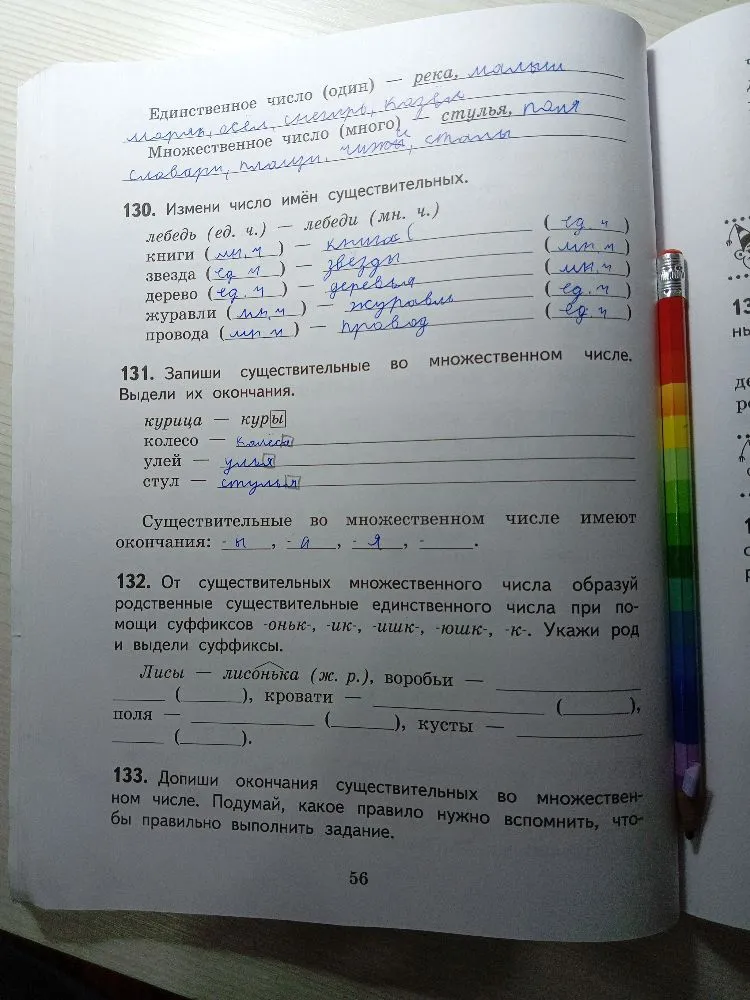 Единственное число (один) — река, малыш
мораль, осёл, снегирь, казван
Множественное число (много) — стулья, поля
словари, плащи, чижи, столы
130. Измени число имён существительных.
лебедь (ед. ч.) — лебеди (мн. ч.)
книги (мн. ч) — книга ( ед. ч )
звезда (ед. ч) — звезды (мн. ч)
дерево (ед. ч) — деревья (мн. ч)
журавли (мн. ч) — журавль (ед. ч)
провода (мн. ч) — провод (ед. ч)
131. Запиши существительные во множественном числе.
Выдели их окончания.
курица — куры
колесо — колёса
улей — улья
стул — стулья
Существительные во множественном числе имеют
окончания: -ы, -а, -я, -.
132. От существительных множественного числа образуй
родственные существительные единственного числа при по-
мощи суффиксов -оньк-, -ик-, -ишк-, -юшк-, -к-. Укажи род
и выдели суффиксы.
Лисы — лисонька (ж. р.), воробьи — ______
_____ (_____), кровати — ______ (_____),
поля — ______ (_____), кусты — ______
_____ (_____).
133. Допиши окончания существительных во множествен-
ном числе. Подумай, какое правило нужно вспомнить, что-
бы правильно выполнить задание.
56